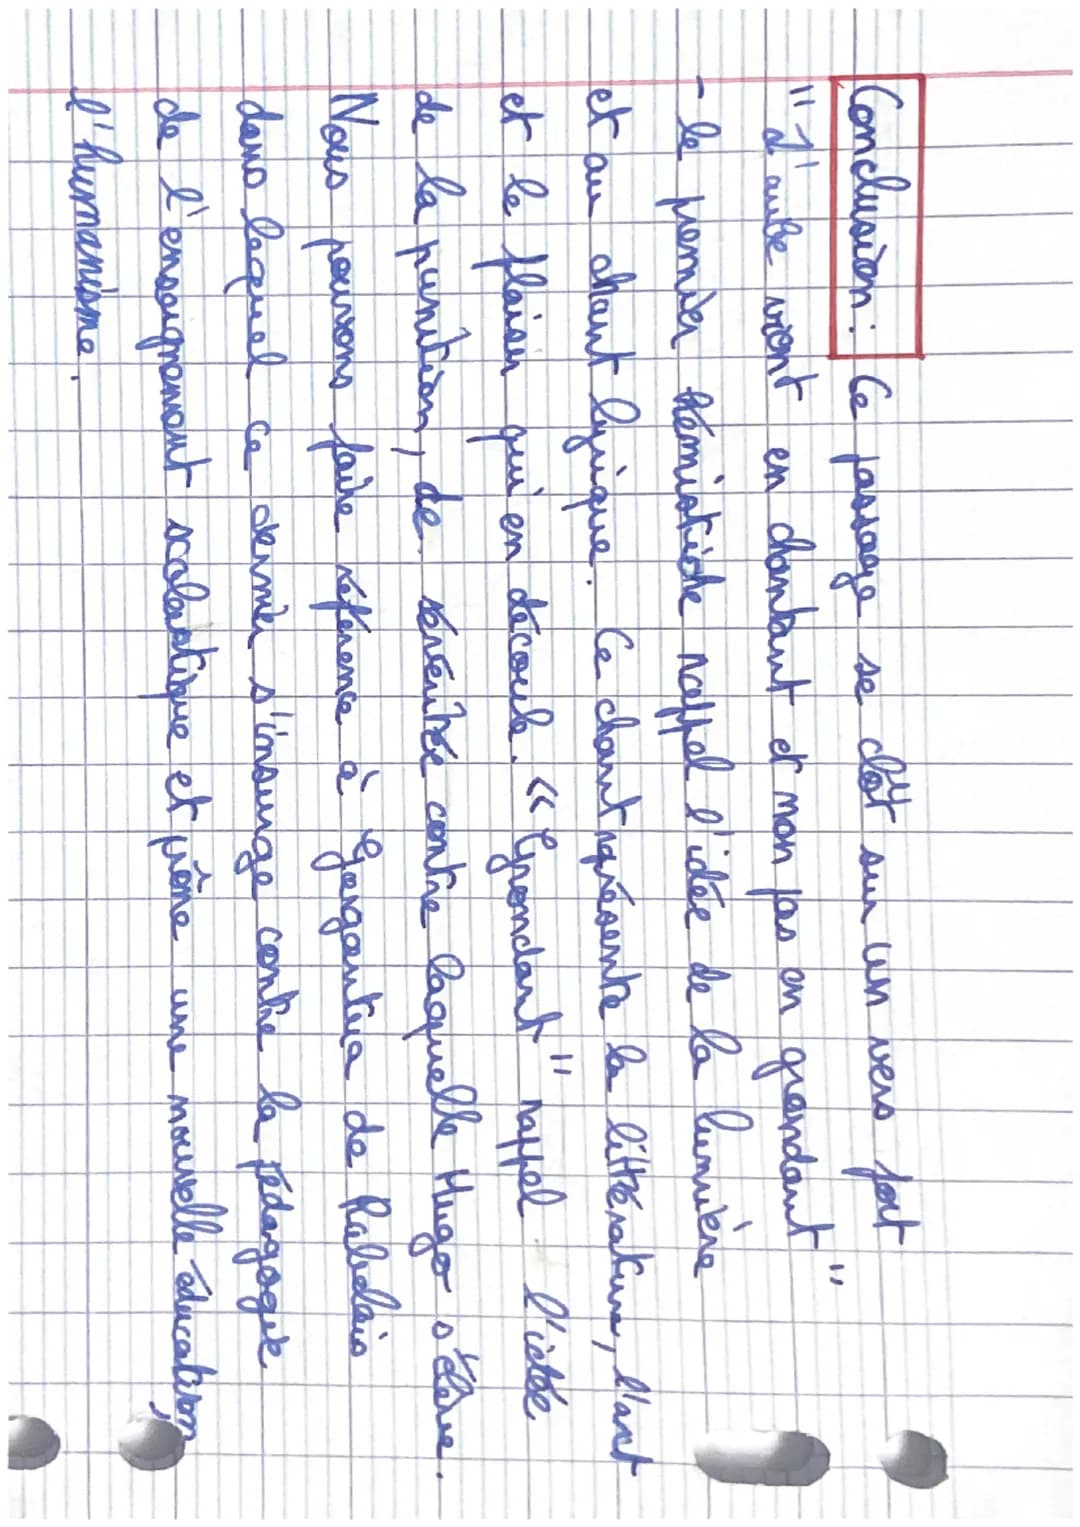 Conclusion : Ce passage se clôt sur un vers fort
"L'aube vient en chantant et non pas en grondant"
- le premier hémistiche rappel l'idée de la lumière
et au chant lyrique. Ce chant représente la littérature, l'art
et le plaisir qui en découle. « Grondant" rappel l'idée
de la punition, de sévérité contre laquelle Hugo s'élève.
Nous pouvons faire référence à Gargantua de Rabelais
dans lequel ce dernier s'insurge contre la pédagogie
de l'enseignement scolastique et prône une nouvelle éducation,
l'humanisme.